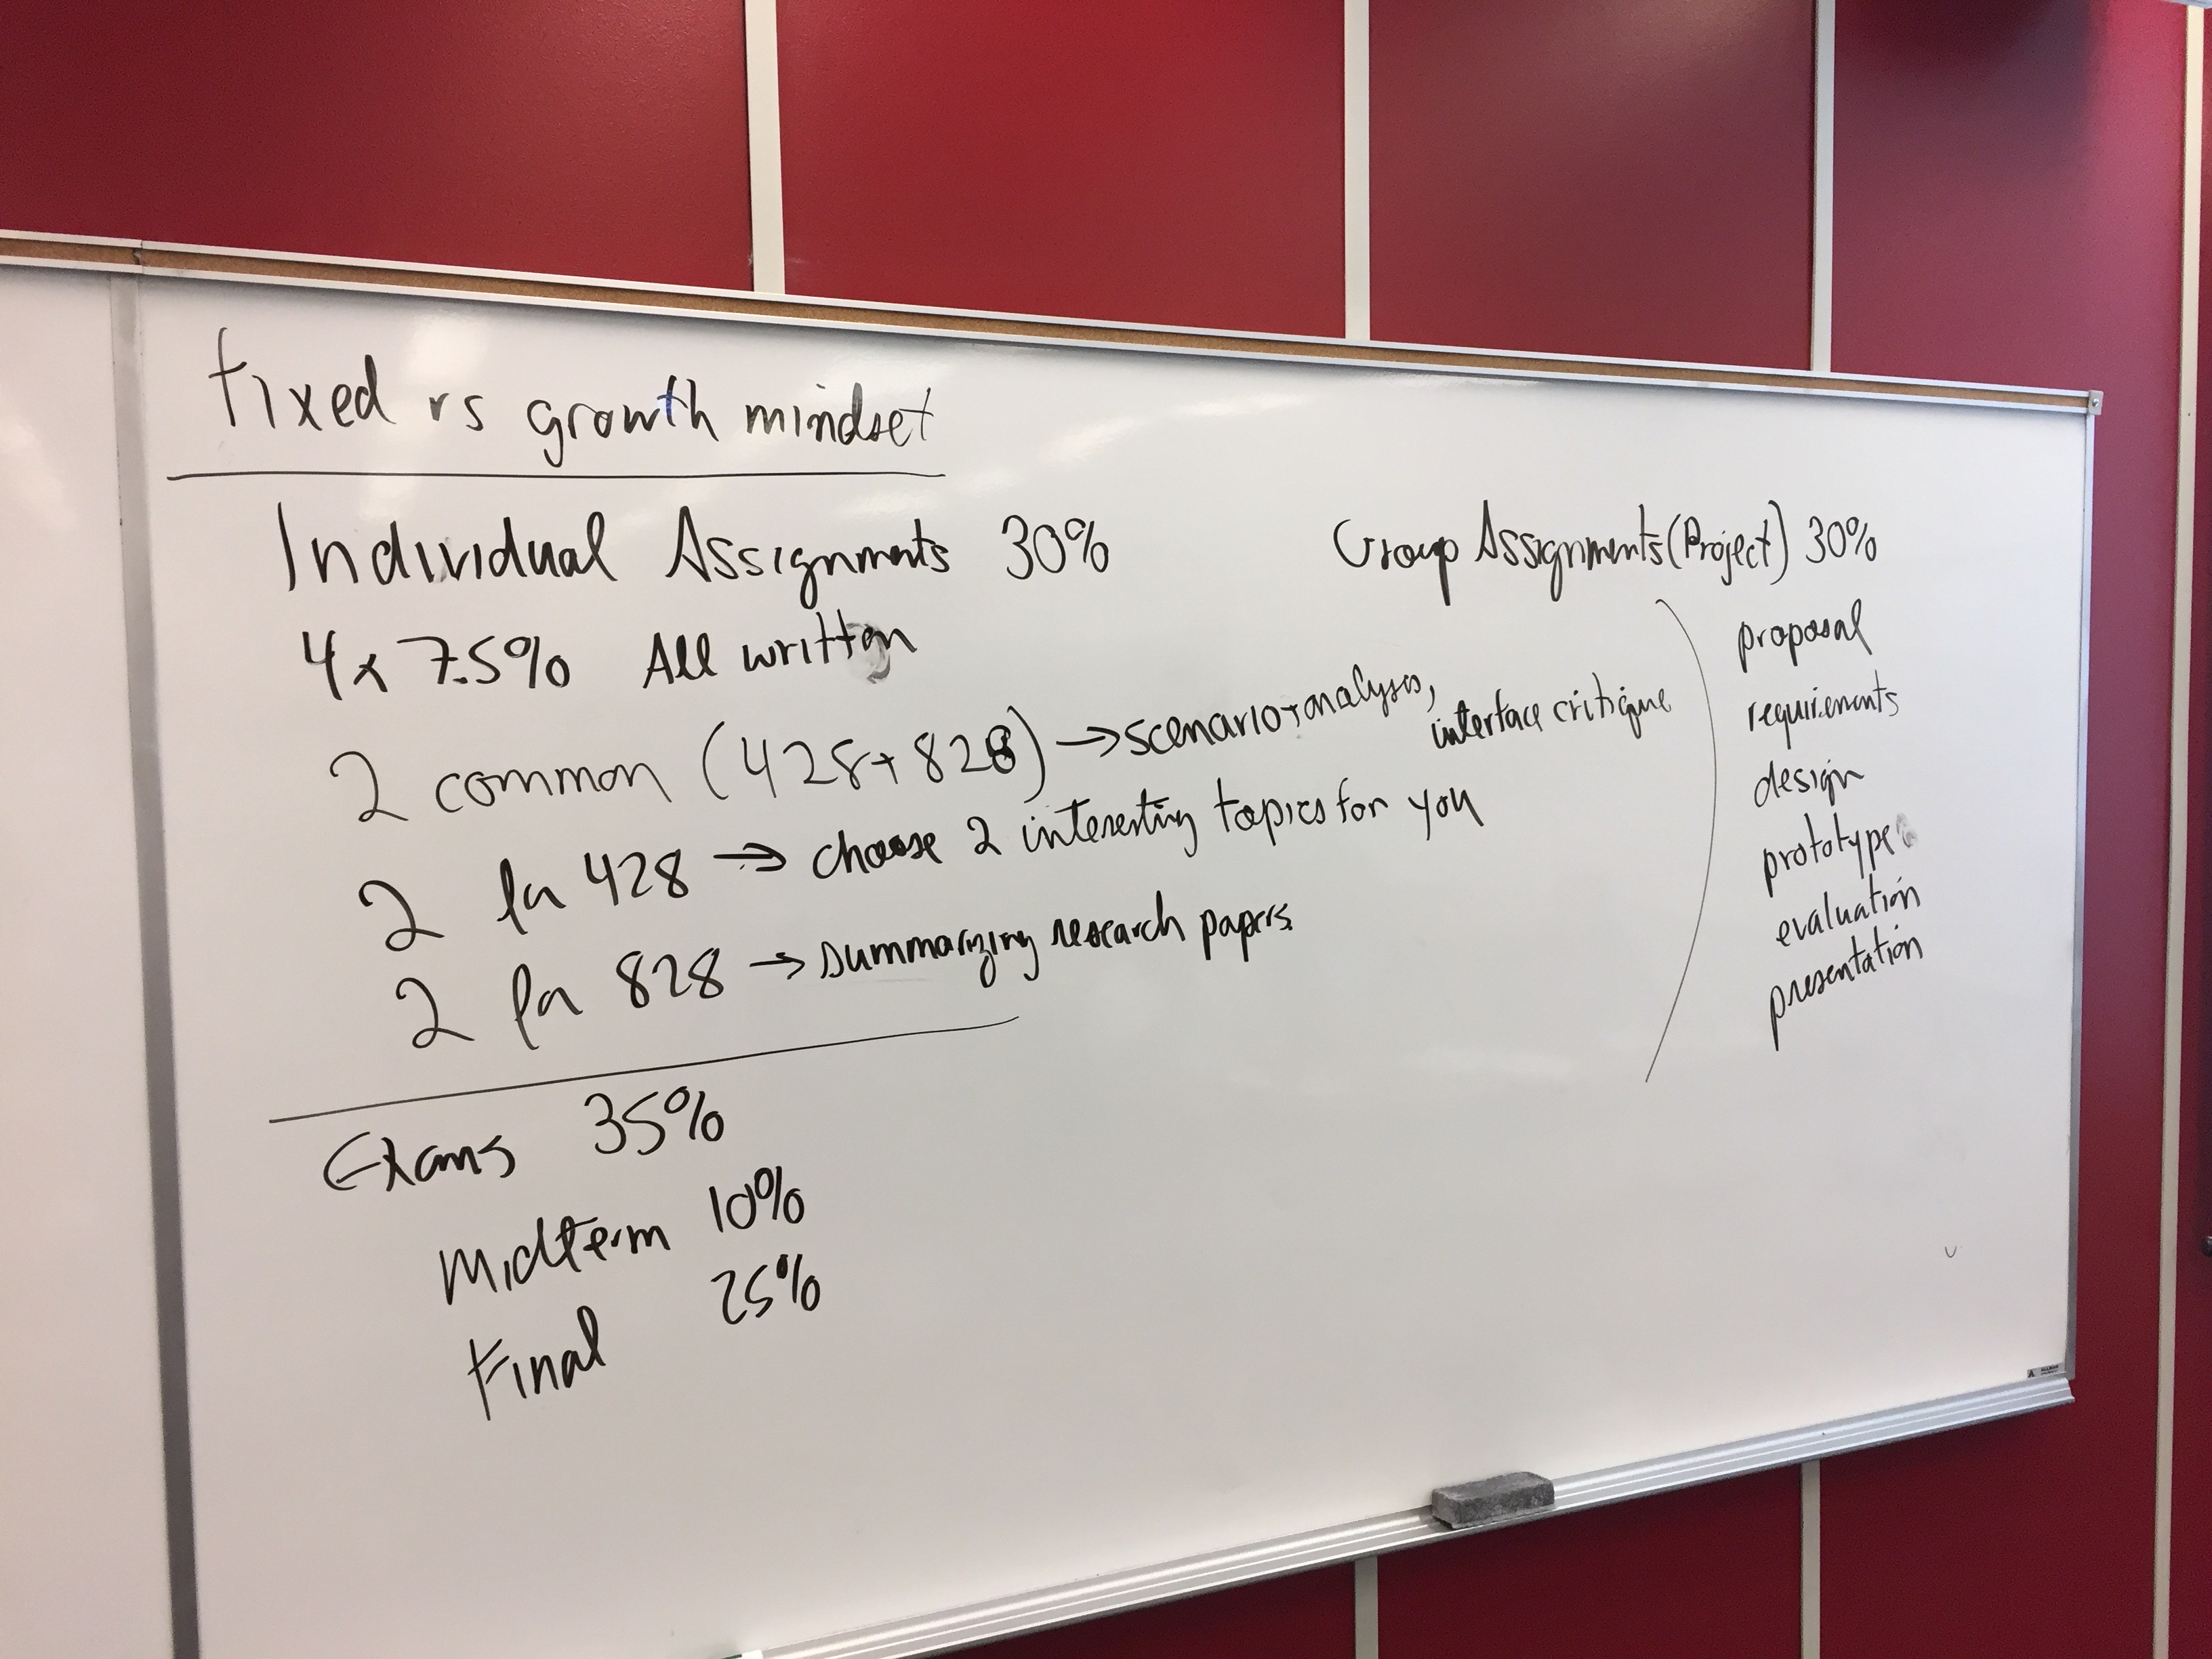 fixed vs growth mindset
Individual Assignments 30%
4x 7.5% All written
2 common (428+828) → scenario+analyses, interface critique
2 for 428 → choose 2 interesting topics for you
2 for 828 → summarizing research papers
Exams 35%
Midterm 10%
Final 25%
Group Assignments (Project) 30%
proposal
requirements
design
prototype
evaluation
presentation